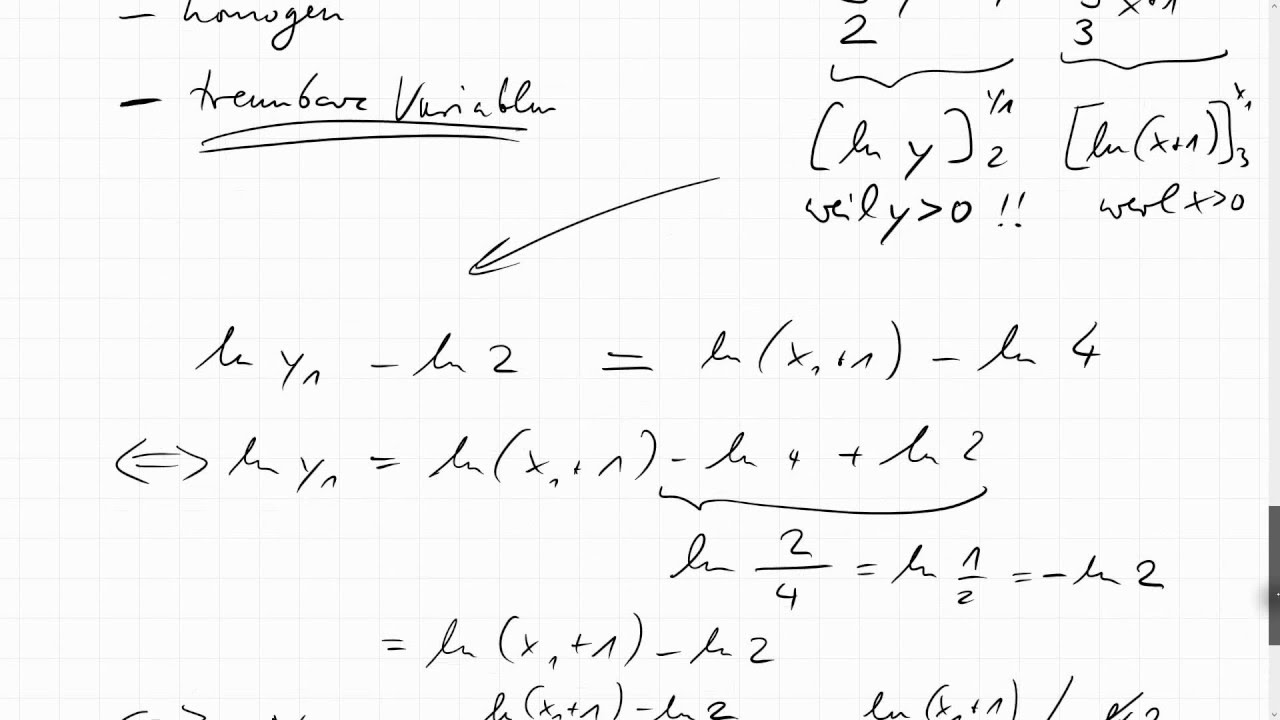 – homogen
– trennbare Variablen
2 3 x+1
[ln y]₂^y₁ [ln(x+1)]₃^x₁
weil y>0 !! weil x>0
ln y₁ – ln 2 = ln(x₁+1) – ln 4
⇔ ln y₁ = ln(x₁+1) – ln 4 + ln 2
ln 2/4 = ln 1/2 = – ln 2
= ln(x₁+1) – ln 2
ln(x₁+1) – ln 2 ln(x₁+1) /